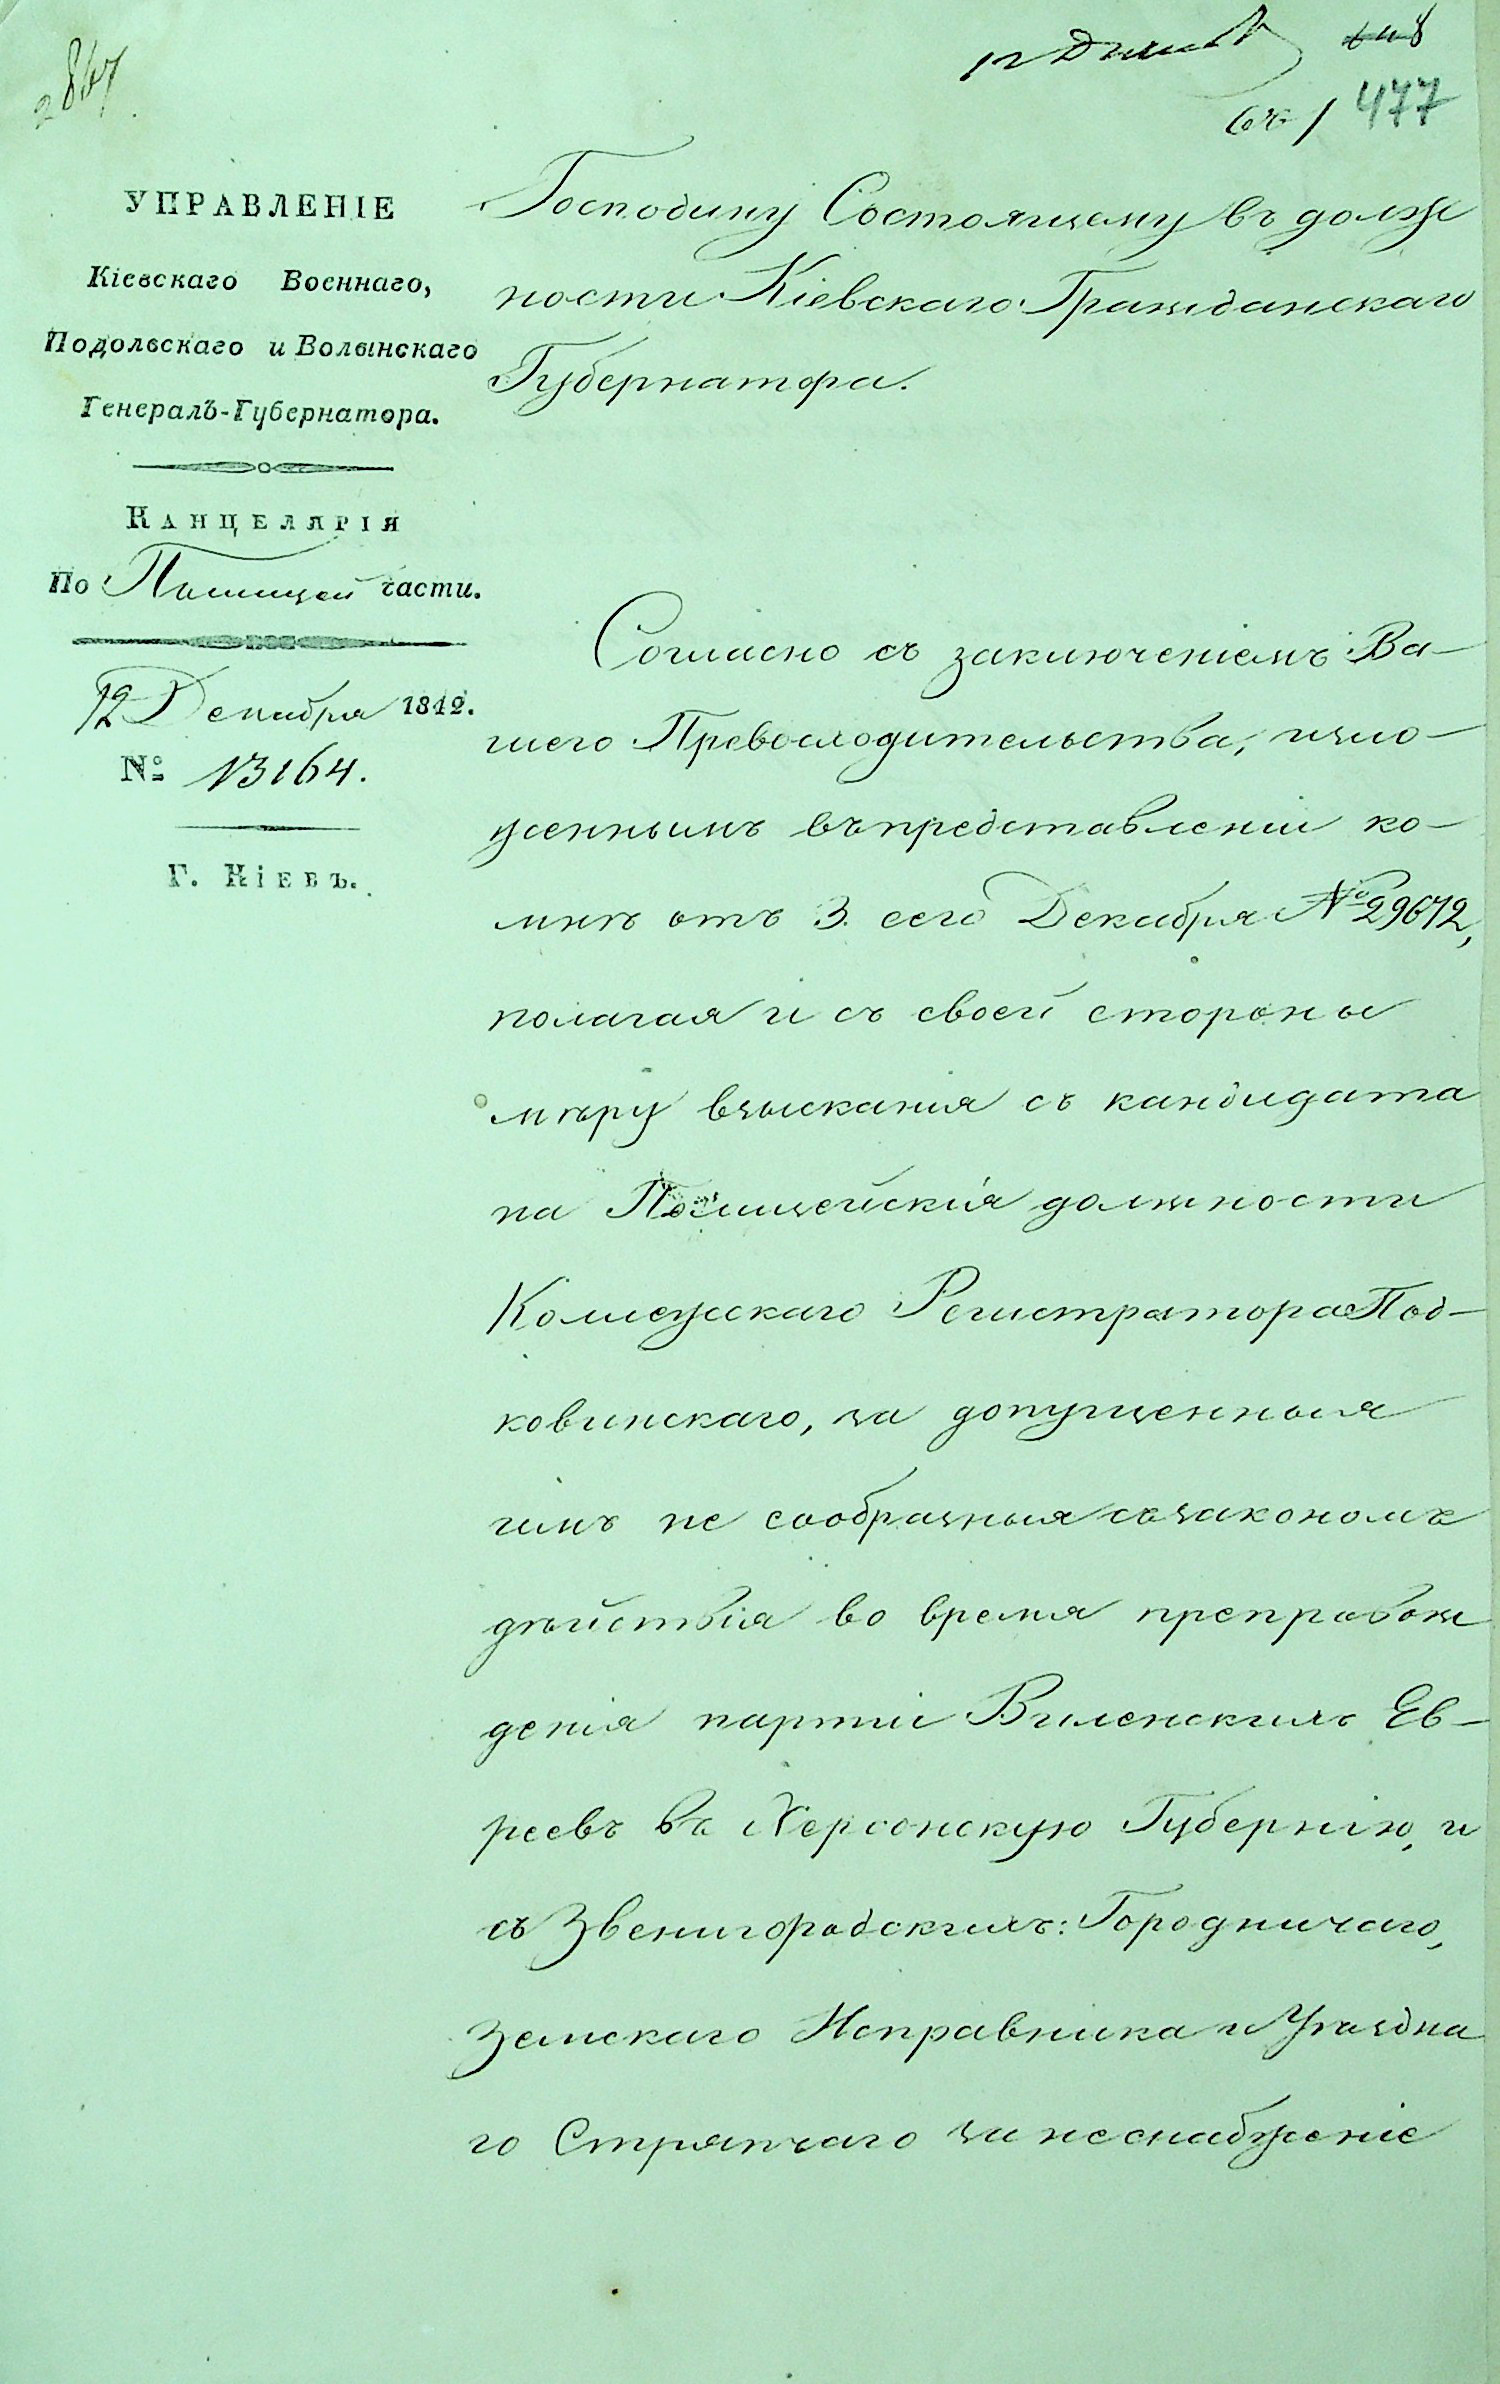 477
УПРАВЛЕНІЕ
Кіевскаго Военнаго,
Подольскаго и Волынскаго
Генералъ-Губернатора.
КАНЦЕЛЯРІЯ
По Полицей части.
12 Декабря 1842.
№ 13164.
Г. КІЕВЪ.
Господину Состоящему въ долж
ности Кіевскаго Гражданскаго
Губернатора.
Согласно съ заключеніемъ Ва-
шего Превосходительства, изло-
женнымъ въ представленіи ко-
мнѣ отъ 3. сего Декабря № 29672,
полагая и съ своей стороны
мѣру взысканія съ кандидата
на Полицейскія должности
Коллежскаго Регистратора Под-
ковинскаго, за допущенныя
имъ не сообразныя съ закономъ
дѣйствія во время препровож
денія партіи Виленскихъ Ев-
реевъ въ Херсонскую Губернію, и
съ Звенигородскихъ: Городничаго,
Земскаго Исправника и Уѣздна
го Стряпчаго за неснабженіе